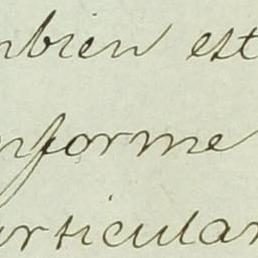 mbien est
nforme
articular